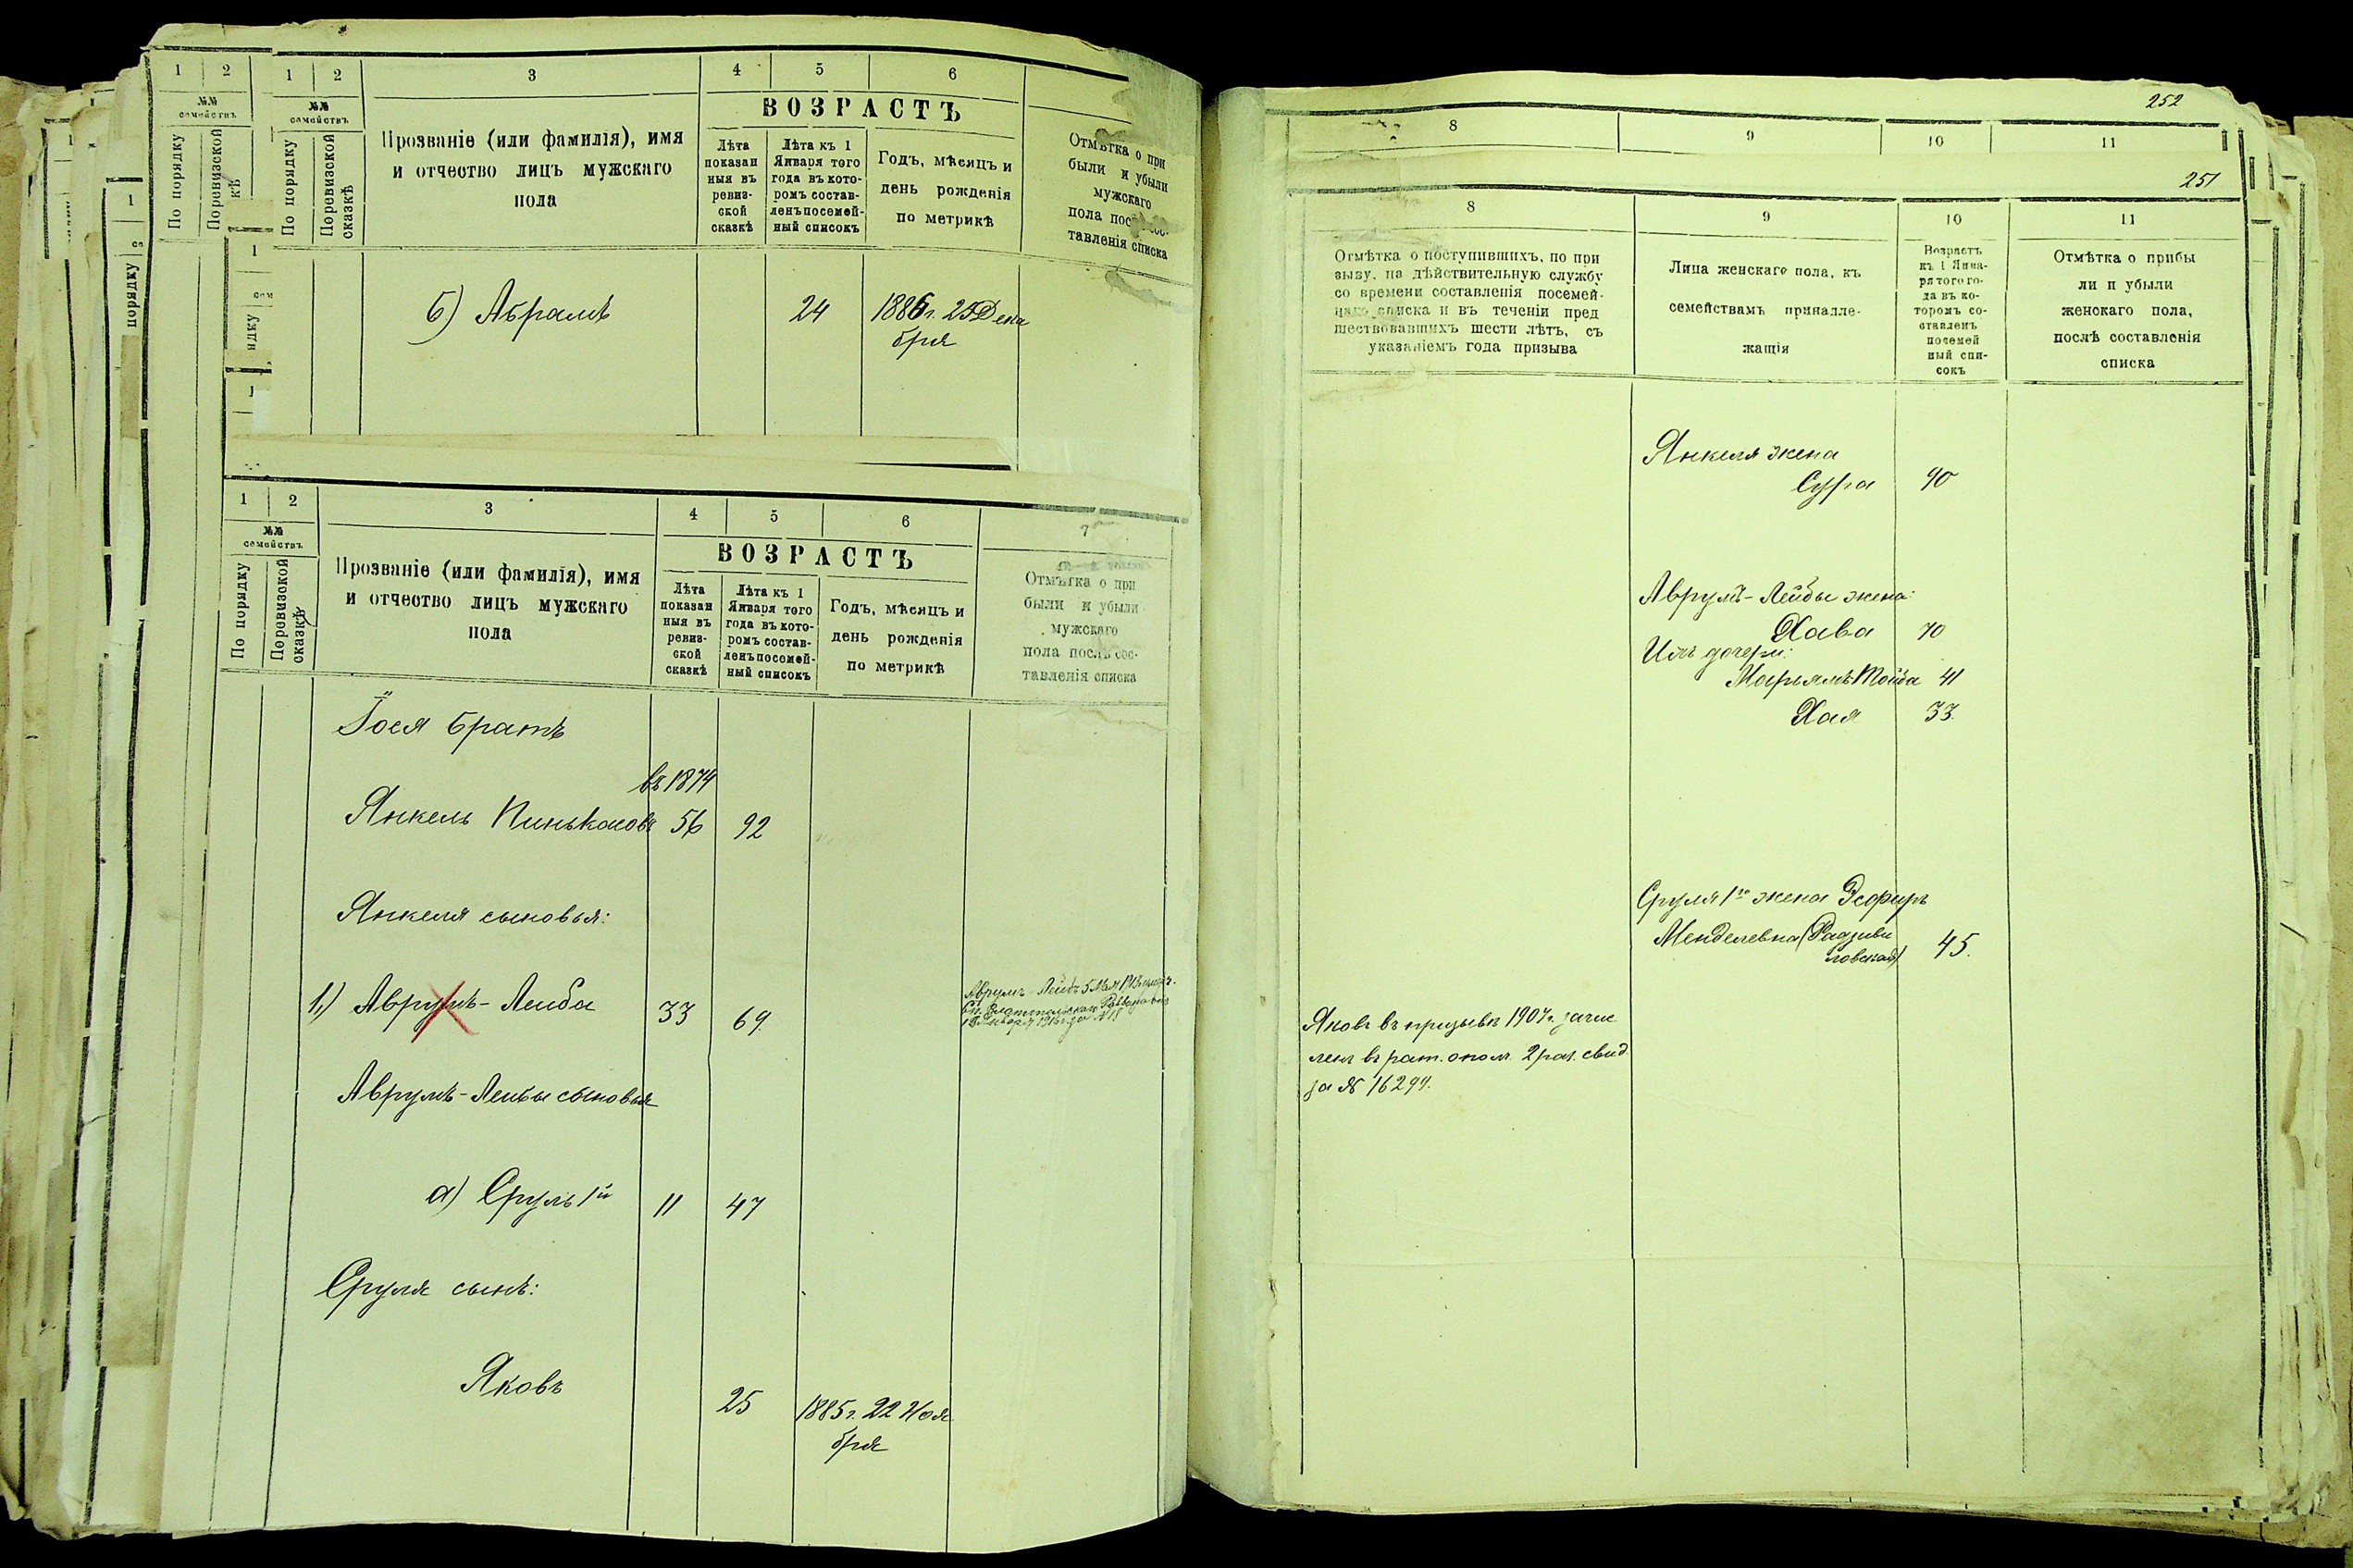 1 2
1 2 3 4 5 6
№№
семействъ
№№
семействъ
По порядку
Поревизской
кѣ
По порядку
Поревизской
сказкѣ
Прозваніе (или фамилія), имя
и отчество лицъ мужскаго
пола
ВОЗРАСТЪ
Лѣта
показан
ныя въ
ревиз-
ской
сказкѣ
Лѣта къ 1
Января того
года въ кото-
ромъ состав-
ленъ посемей-
ный списокъ
Годъ, мѣсяцъ и
день рожденія
по метрикѣ
Отмѣтка о при
были и убыли
мужскаго
пола
тавленія списка
б) Абрамъ 24 1886 г. 25 Дека
бря
1 2 3 4 5 6 7
№№
семействъ
По порядку
Поревизской
сказкѣ
Прозваніе (или фамилія), имя
и отчество лицъ мужскаго
пола
ВОЗРАСТЪ
Лѣта
показан
ныя въ
ревиз-
ской
сказкѣ
Лѣта къ 1
Января того
года въ кото-
ромъ состав-
ленъ посемей-
ный списокъ
Годъ, мѣсяцъ и
день рожденія
по метрикѣ
Отмѣтка о при
были и убыли
мужскаго
пола послѣ сос-
тавленія списка
Іося братъ
въ 1874
Янкель Пинькасовъ 56 92
Янкеля сыновья:
1) Аврумъ-Лейба 33 69
Аврумъ-Лейба 5 Мая
Аврумъ-Лейбы сыновья
а) Сруль 1й 11 47
Сруля сынъ:
Яковъ 25 1885 г. 22 Ноя
бря
252
8 9 10 11
251
8 9 10 11
Отмѣтка о поступившихъ, по при
зыву, на дѣйствительную службу
со времени составленія посемей-
наго списка и въ теченіи пред
шествовавшихъ шести лѣтъ, съ
указаніемъ года призыва
Лица женскаго пола, къ
семействамъ принадле-
жащія
Возрастъ
къ 1 Янва-
ря того го-
да въ ко-
торомъ со-
ставленъ
посемей
ный спи-
сокъ
Отмѣтка о прибы
ли и убыли
женскаго пола,
послѣ составленія
списка
Янкеля жена
Сура 90
Аврумъ-Лейбы жена:
Хава 70
Ихъ дочери:
Марьямъ Тойба 41
Хая 33.
Сруля 1го жена Эсфирь
Менделевна (Радзиви
ловская) 45.
Яковъ въ призывѣ 1907 г. зачис
ленъ въ рат. опол. 2 раз. свид.
за № 16299.